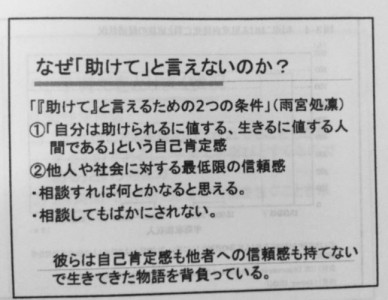 なぜ「助けて」と言えないのか？
「『助けて』と言えるための2つの条件」(雨宮処凛)
①「自分は助けられるに値する、生きるに値する人
間である」という自己肯定感
②他人や社会に対する最低限の信頼感
・相談すれば何とかなると思える。
・相談してもばかにされない。
彼らは自己肯定感も他者への信頼感も持てない
で生きてきた物語を背負っている。